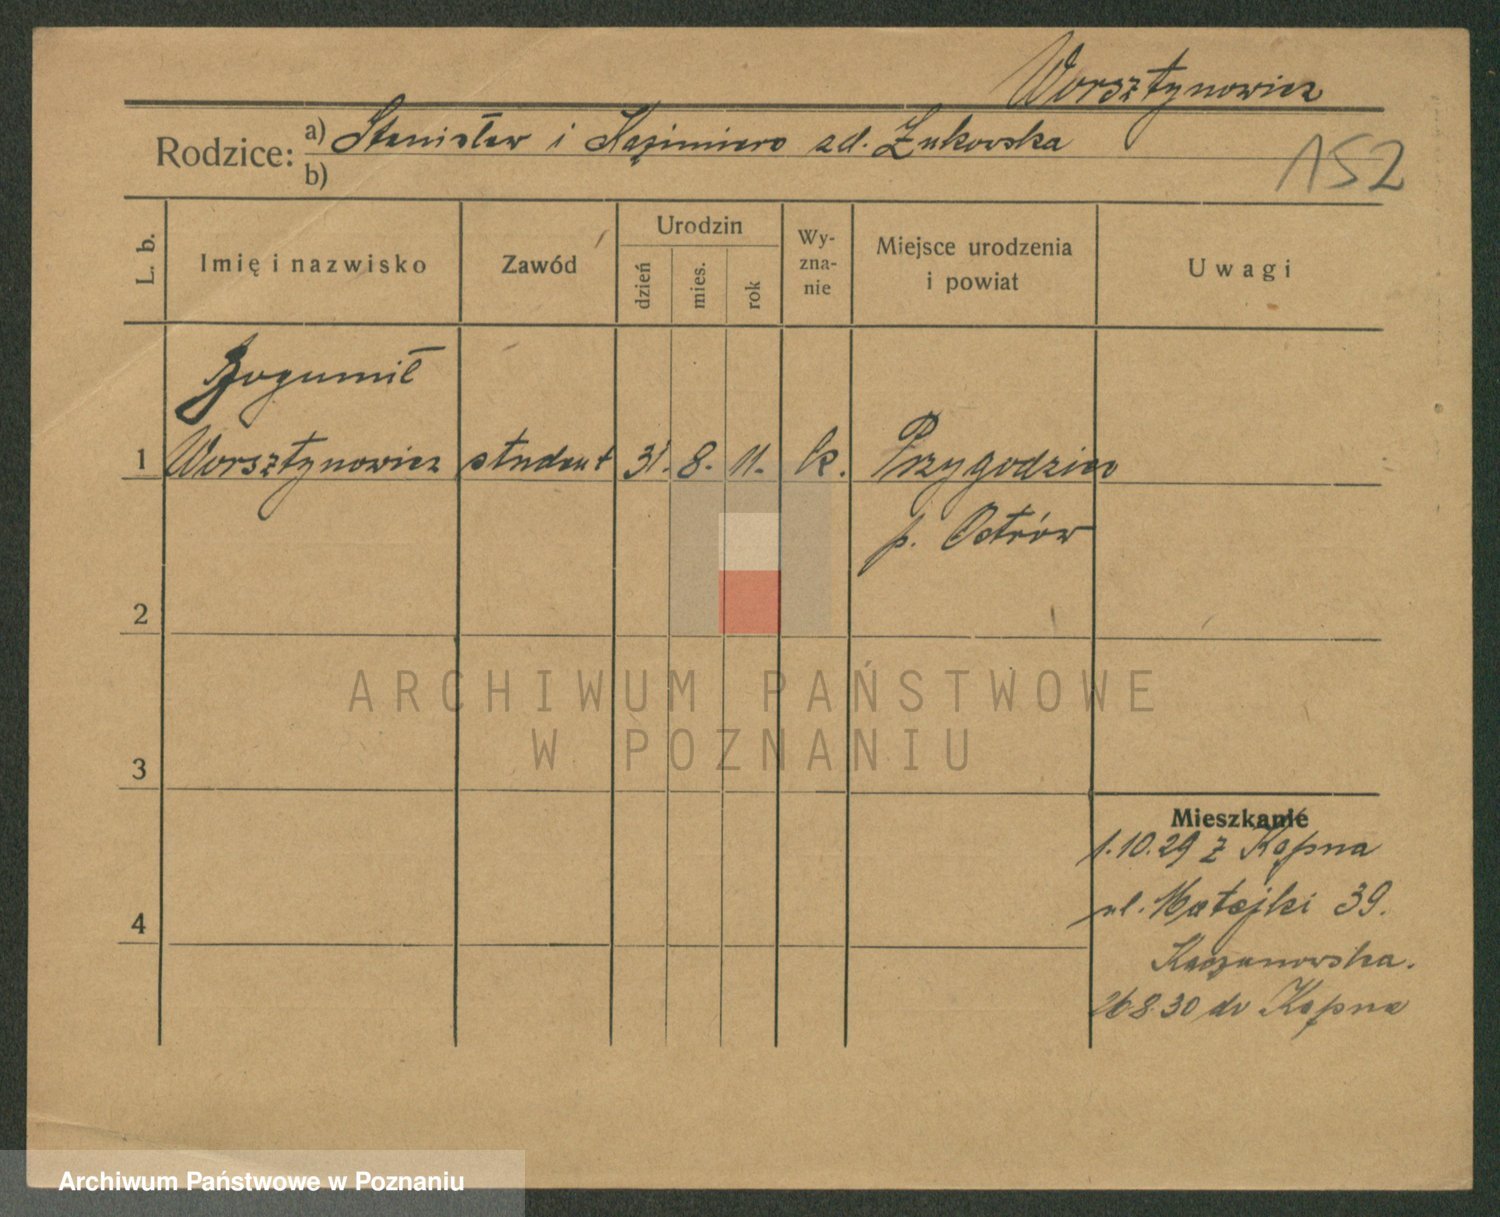 Worsztynowicz
Rodzice: a) Stanisław i Kazimiera zd. Żukowska
b)
152
L. b.
Imię i nazwisko
Zawód
Urodzin
dzień
mies.
rok
Wy-
zna-
nie
Miejsce urodzenia
i powiat
Uwagi
Bogumił
1 Worsztynowicz student 31. 8. 11. k. Przygodzice
p. Ostrów
2
3
4
Mieszkanie
1.10.29 z Kępna
ul. Matejki 39.
26 8.30 do Kępna
ARCHIWUM PAŃSTWOWE
W POZNANIU
Archiwum Państwowe w Poznaniu